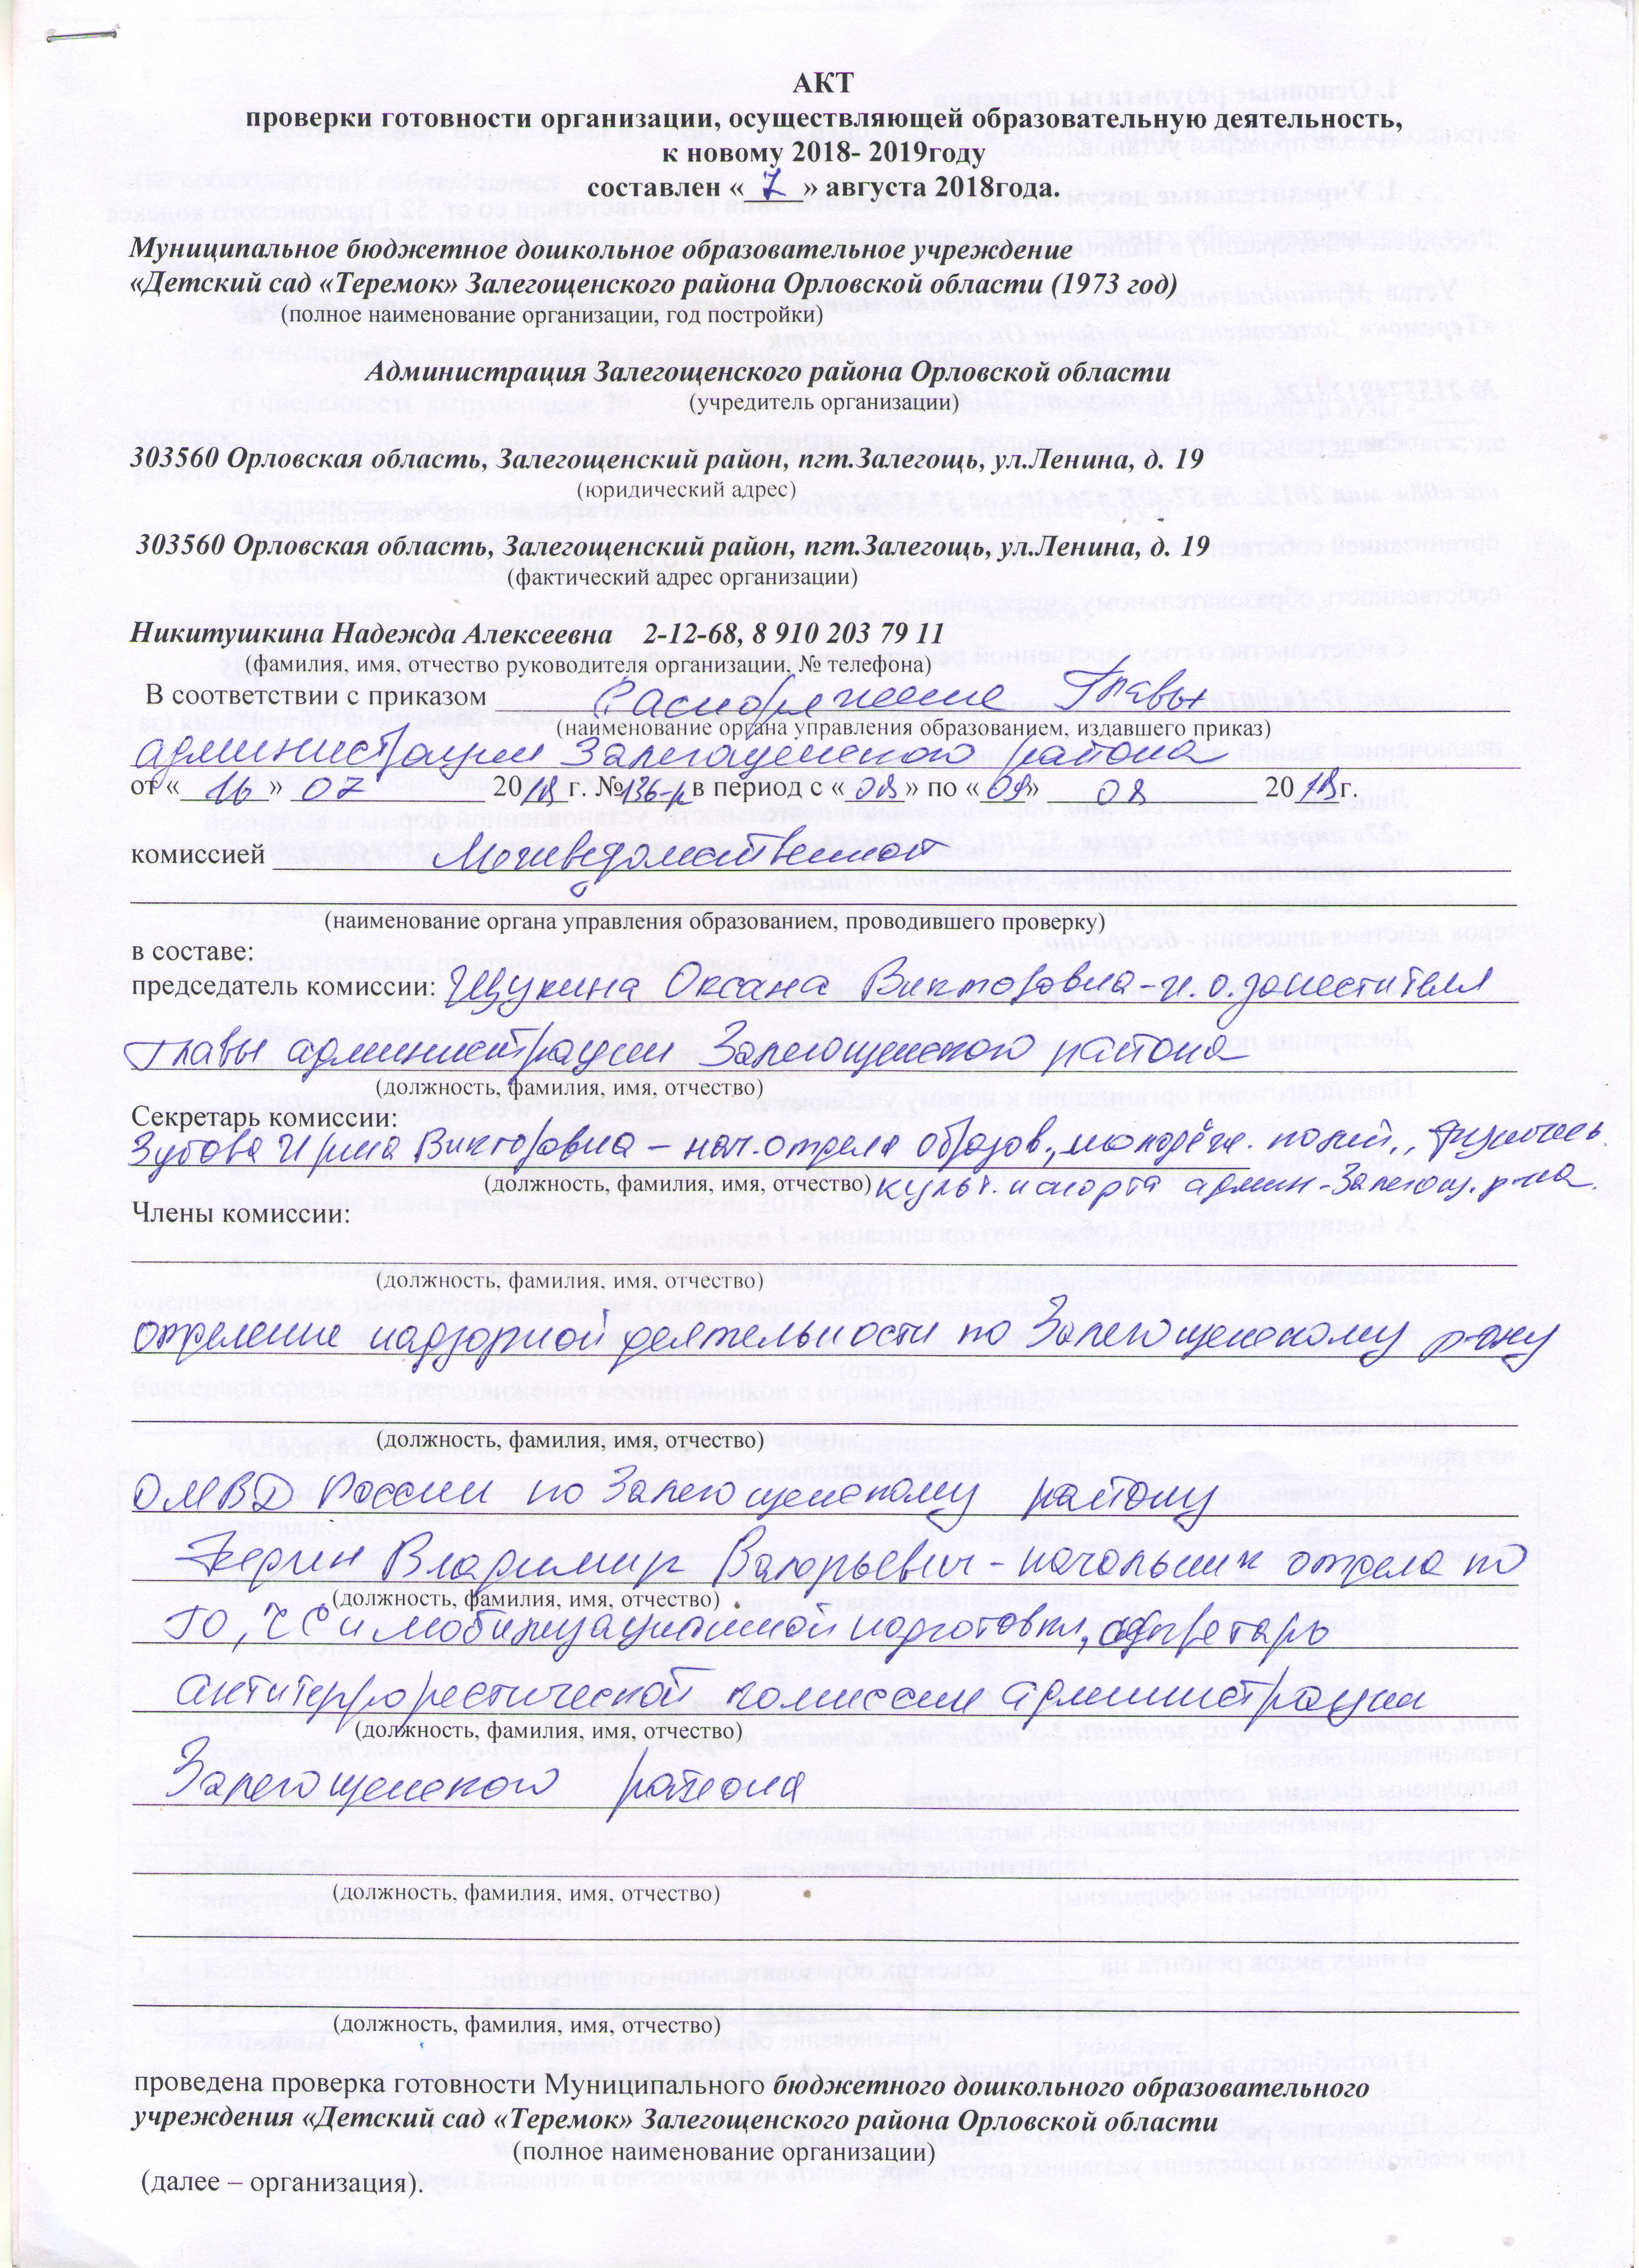 АКТ
проверки готовности организации, осуществляющей образовательную деятельность,
к новому 2018- 2019году
составлен « 7 » августа 2018года.
Муниципальное бюджетное дошкольное образовательное учреждение
«Детский сад «Теремок» Залегощенского района Орловской области (1973 год)
(полное наименование организации, год постройки)
Администрация Залегощенского района Орловской области
(учредитель организации)
303560 Орловская область, Залегощенский район, пгт.Залегощь, ул.Ленина, д. 19
(юридический адрес)
303560 Орловская область, Залегощенский район, пгт.Залегощь, ул.Ленина, д. 19
(фактический адрес организации)
Никитушкина Надежда Алексеевна 2-12-68, 8 910 203 79 11
(фамилия, имя, отчество руководителя организации, № телефона)
В соответствии с приказом Распоряжение Главы
(наименование органа управления образованием, издавшего приказ)
администрации Залегощенского района
от « 16 » 07 2018 г. №136-р в период с « 08 » по « 09 » 08 2018г.
комиссией Межведомственной
(наименование органа управления образованием, проводившего проверку)
в составе:
председатель комиссии: Щукина Оксана Викторовна - и.о. заместителя
главы администрации Залегощенского района
(должность, фамилия, имя, отчество)
Секретарь комиссии:
Зубова Ирина Викторовна – нач. отдела образов., молодёж. полит.,
(должность, фамилия, имя, отчество) культ. и спорта админ-Залегощ. р-на.
Члены комиссии:
(должность, фамилия, имя, отчество)
отделение надзорной деятельности по Залегощенскому р-ону
(должность, фамилия, имя, отчество)
ОМВД России по Залегощенскому району
Владимир Валерьевич - начальник отдела по
(должность, фамилия, имя, отчество)
ГО, ЧС и мобилизационной подготовки, секретарь
антитеррористической комиссии администрации
(должность, фамилия, имя, отчество)
Залегощенского района
(должность, фамилия, имя, отчество)
(должность, фамилия, имя, отчество)
проведена проверка готовности Муниципального бюджетного дошкольного образовательного
учреждения «Детский сад «Теремок» Залегощенского района Орловской области
(полное наименование организации)
(далее – организация).